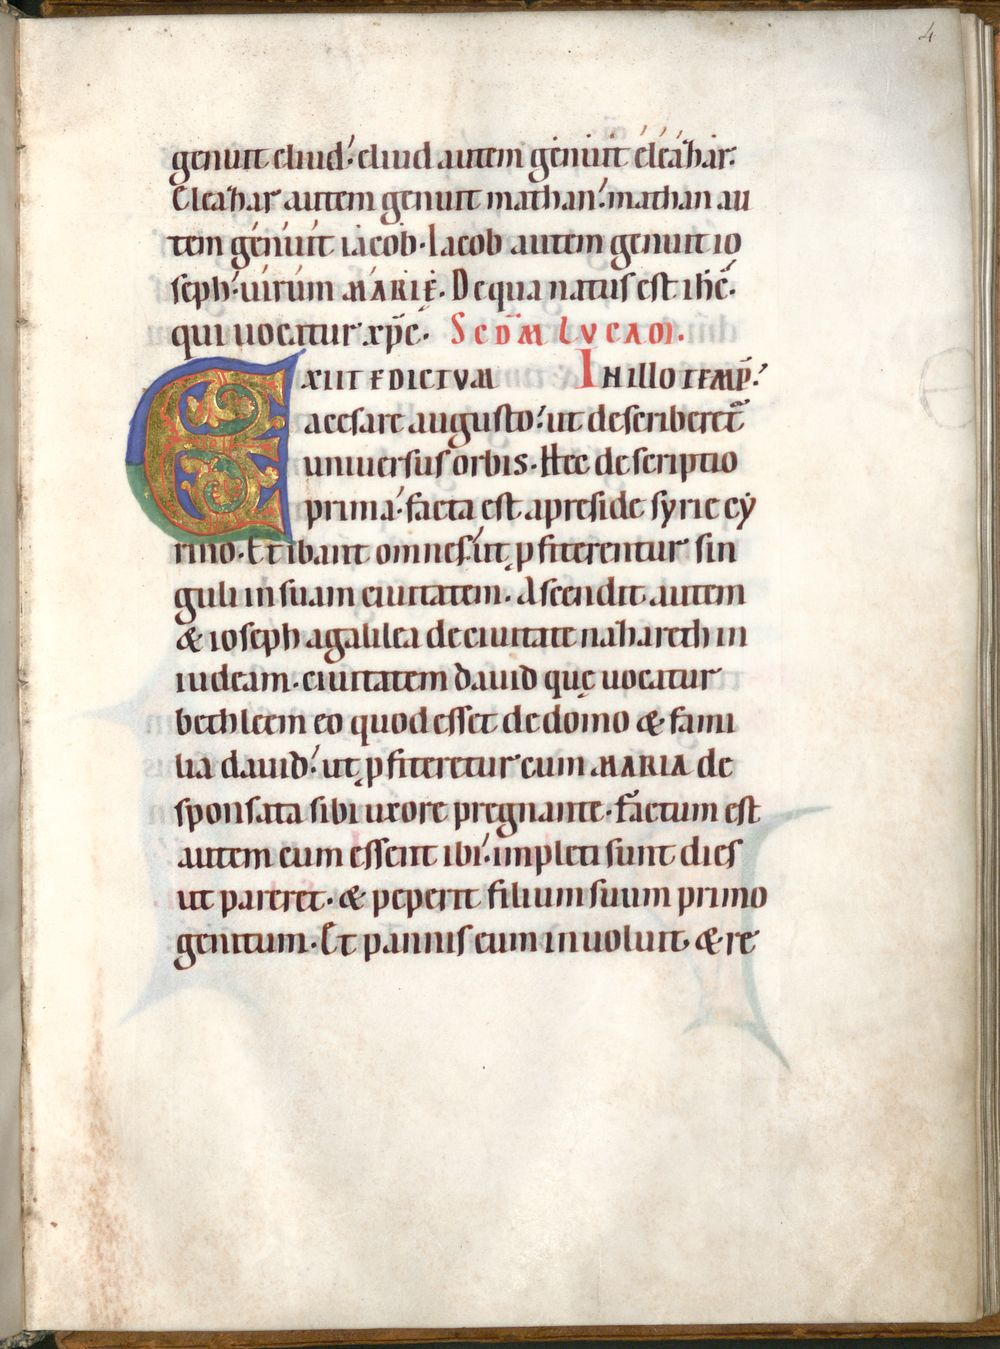 4
genuit eliud. eliud autem genuit eleahar.
Eleahar autem genuit mathan. mathan au
tem genuit iacob. Iacob autem genuit io
seph. uirum MARIĘ. De qua natus est ihc̄.
qui uocatur xpc̄. Scd̄m LVCAM.
EXIIT EDICTVM IN ILLO TEMP̄.
a cesare augusto. ut describeret̄
uniuersus orbis. Hec descriptio
prima. facta est a preside syrie cy
rino. Et ibant omnes ut ꝓfiterentur sin
guli in suam ciuitatem. Ascendit autem
& ioseph a galilea de ciuitate nahareth in
iudeam. ciuitatem dauid quę uocatur
bethleem eo quod esset de domo & fami
lia dauid. ut ꝓfiteretur cum MARIA de
sponsata sibi uxore pregnante. Factum est
autem cum essent ibi. impleti sunt dies
ut pareret. & peperit filium suum primo
genitum. Et pannis eum inuoluit. & re